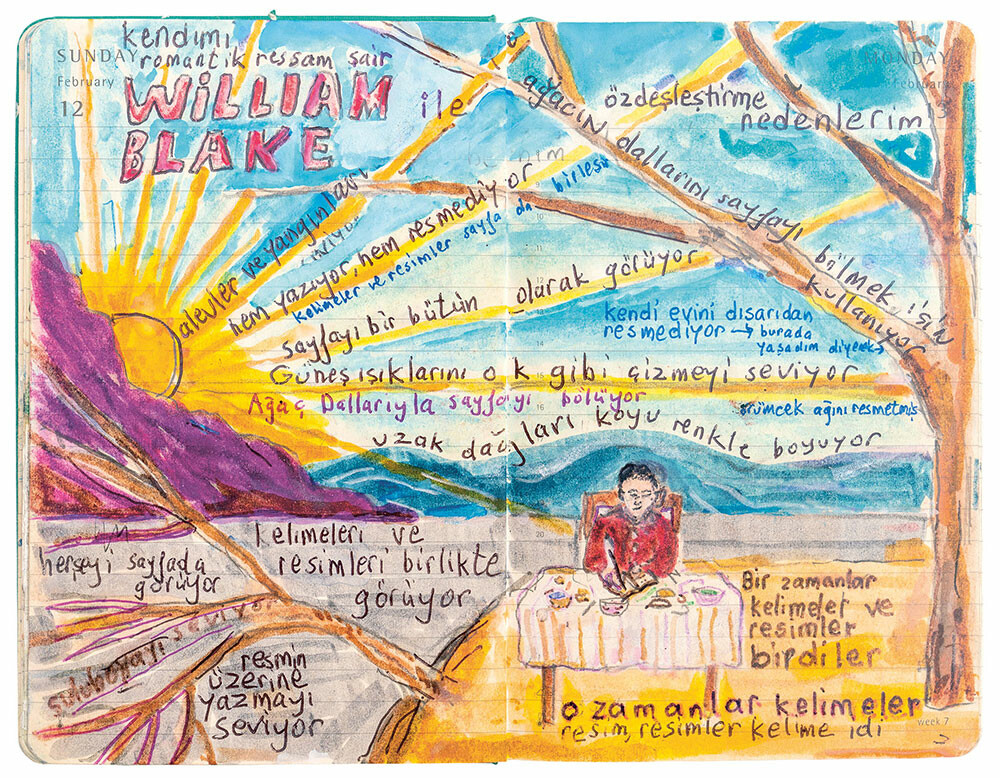 SUNDAY
February
12
MONDAY
February
kendimi
romantik ressam şair
WİLLİAM
BLAKE
ile
özdeşleştirme
nedenlerim
ağacın dallarını sayfayı bölmek için
kullanıyor
alevler ve yangınları
seviyor
hem yazıyor, hem resmediyor
kelimeler ve resimler sayfa da
birleşir
sayfayı bir bütün olarak görüyor
kendi evini dışarıdan
resmediyor → burada
yaşadım diyerek →
Güneş ışıklarını ok gibi çizmeyi seviyor
Ağaç Dallarıyla sayfayı bölüyor
örümcek ağını resmetmiş
uzak dağları koyu renkle boyuyor
herşeyi sayfada
görüyor
kelimeleri ve
resimleri birlikte
görüyor
suluboyayı seviyor
resmin
üzerine
yazmayı
seviyor
Bir zamanlar
kelimeler ve
resimler
birdiler
o zamanlar kelimeler
resim, resimler kelime idi
week 7